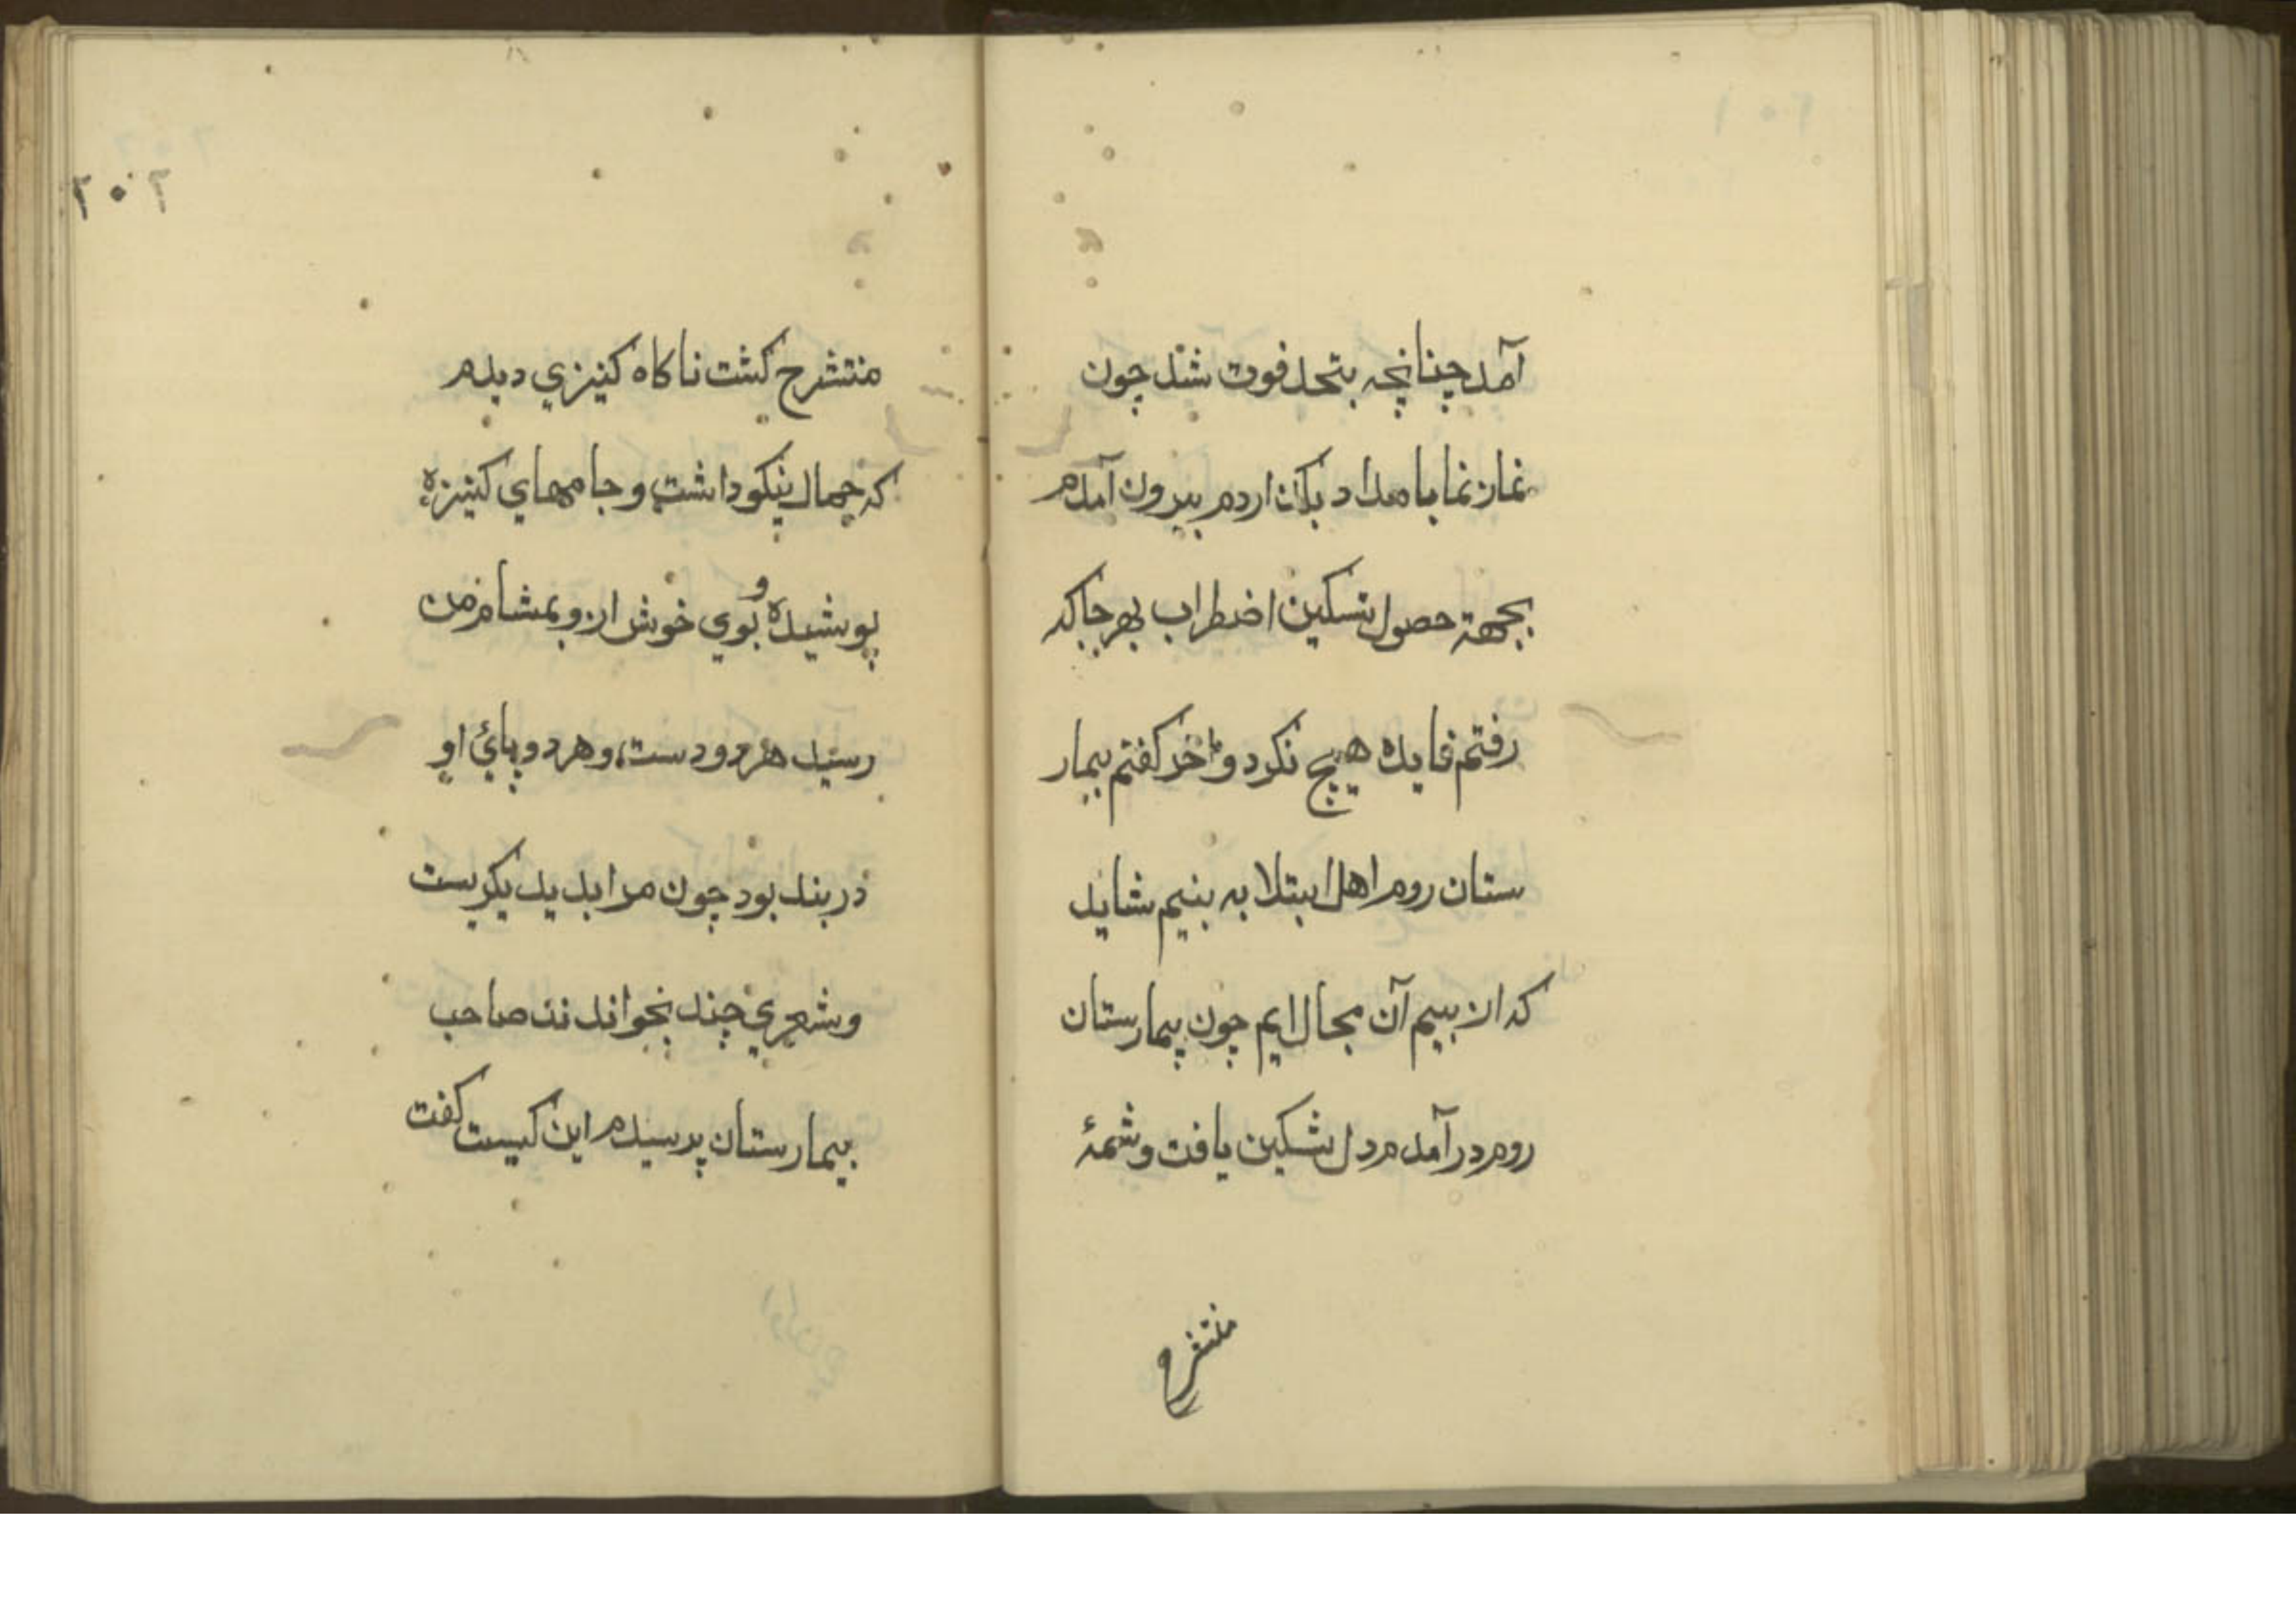 آمد چنانچه بتحد فوت شد چون
نماز نمابامداد بکذاردم بیرون آمدم
بجهة حصول تسکین اضطراب بهرجا که
رفتم فایده هیچ نکرد و آخر کفتم بیمار
ستان روم اهل ابتلا به بنیم شاید
که از بیم آن مجال ایم چون بیمارستان
روم در آمدم دل تسکین یافت و شمهٔ
منتشرح
۲۰۲
منتشرح کشت ناکاه کنیزي دیدم
که جمال نیکو داشت و جامهاي کنیزه
پوشیده و بوي خوش ازو بمشام من
رسید هر دو دست و هر دو پائ او
در بند بود چون مرا بدید بکریست
و شعري چند بخواند نذ صاحب
بیمارستان پرسیدم این کیست کفت